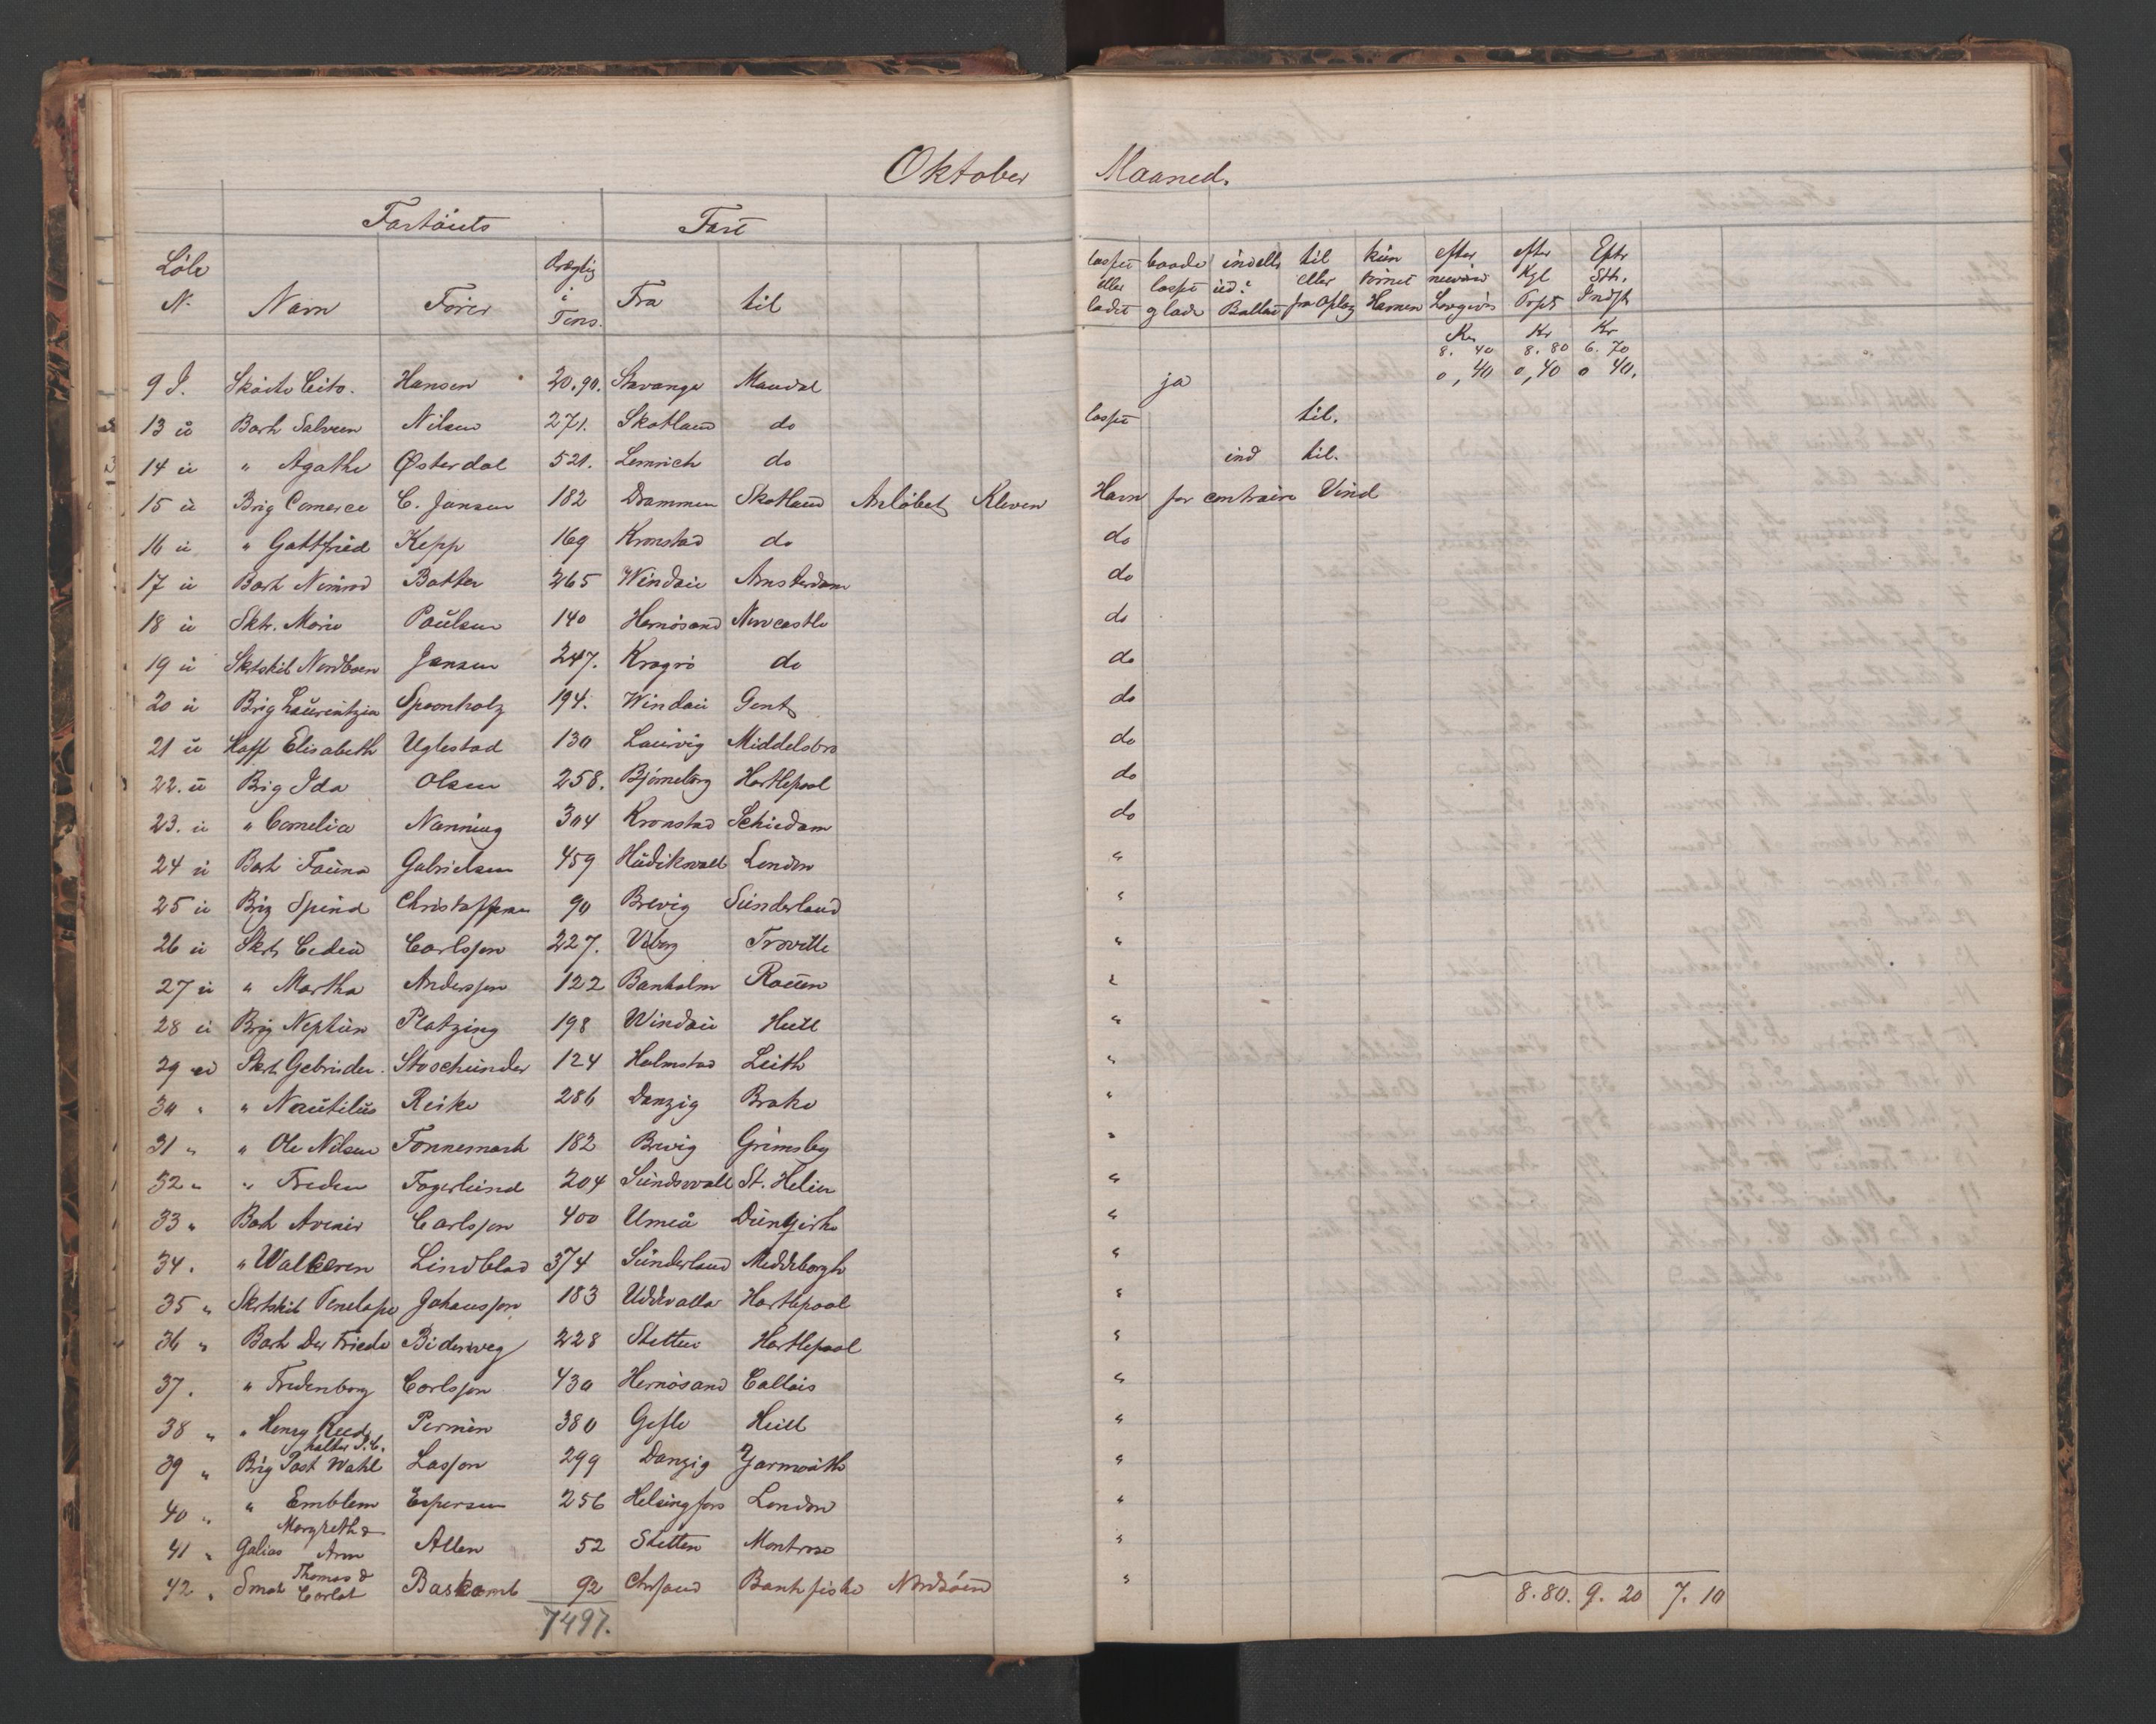 Oktober Maaned.
Fartöiets Fart
Löbe Drægtig losset baade indells til kün efter efter Efter
N. Navn Förer i Tons. Fra til eller losset üd? eller nuværd Kgl Stth.
ladet og lade Ballast fra Oplag Havnen Lovgivn Prpt Indst
Kr Kr Kr
8. 40 8. 80 6. 70
9 I. Sköite Cito. Hansen 20,90. Stavanger Mandal ja 0,40 0,40 0 40.
13 ü Bark Nilsen 271. Skotland do losset til.
14 ü " Agathe Østerdal 521. do ind til.
15 ü Brig Comerce C. Jansen 182 Drammen Skotland Anløbet Kleven Havn for contrair Vind
16 ü " Gottfried Kepp 169 Kronstad do do
17 ü Bark Nimrod Botter 265 Windaü Amsterdam do
18 ü Sktr. Marie Paülsen 140 Hernösand Newcastle do
19 ü Sktskib Nordboen Jensen 247. Kragrö do do
20 ü Brig Laürentzia Spoonholz 194. Windaü Gent do
21 ü Kaff Elisabeth Uglestad 130 Laürvig Middelsbro do
22. ü Brig Ida Olsen 258. Björneborg Hartlepool do
23. ü " Cornelia Nanning 304 Kronstad Schiedam do
24 ü Bark Faüna Gabrielsen 459 Hüdikswall London "
25 ü Brig Spind Christoffersen 90 Brevig Sünderland "
26 ü Skrt Carlsson 227. Viborg Troville "
27 ü " Martha Andersson 122 Banholm Roüen "
28 ü Brig Neptün Platzing 198 Windaü Hull "
29 ü Skrt Gebrüder. 124 Halmstad Leith "
30 " " Naütilüs Reike 286 Danzig Brake "
31 " " Ole Nilsen Tonnemark 182 Brevig Grimsby "
32 " " Freden Fagerlünd 204 Sündswall St. Helier "
33 " Bark Avenir Carlsson 400 Umeå Dünkjirke "
34. " Walkeren Lindblad 374 Sünderland "
35 " Sktskib Penelope Johansson 183 Uddevalla Hartlepool "
36 " Bark Der Friede Biderweg 228 Stettin Hartlepool "
37. " Fredenborg Carlsson 430 Hernösand Callais "
38 " " Henry Reed Permin 380 Gefle Hüll "
39 " Brig Past Wahl Lasson 299 Danzig Yarmoüth "
40 " " Emblem Espersen 256 Helsingfors London "
41 " Galias Margreth & Ann Allen 52 Stetten Montrose "
42 " Smak Thomas & Baskomb 92 Chrsand Bankfiske Nordsöen "
7497. 8.80. 9. 20 7. 10